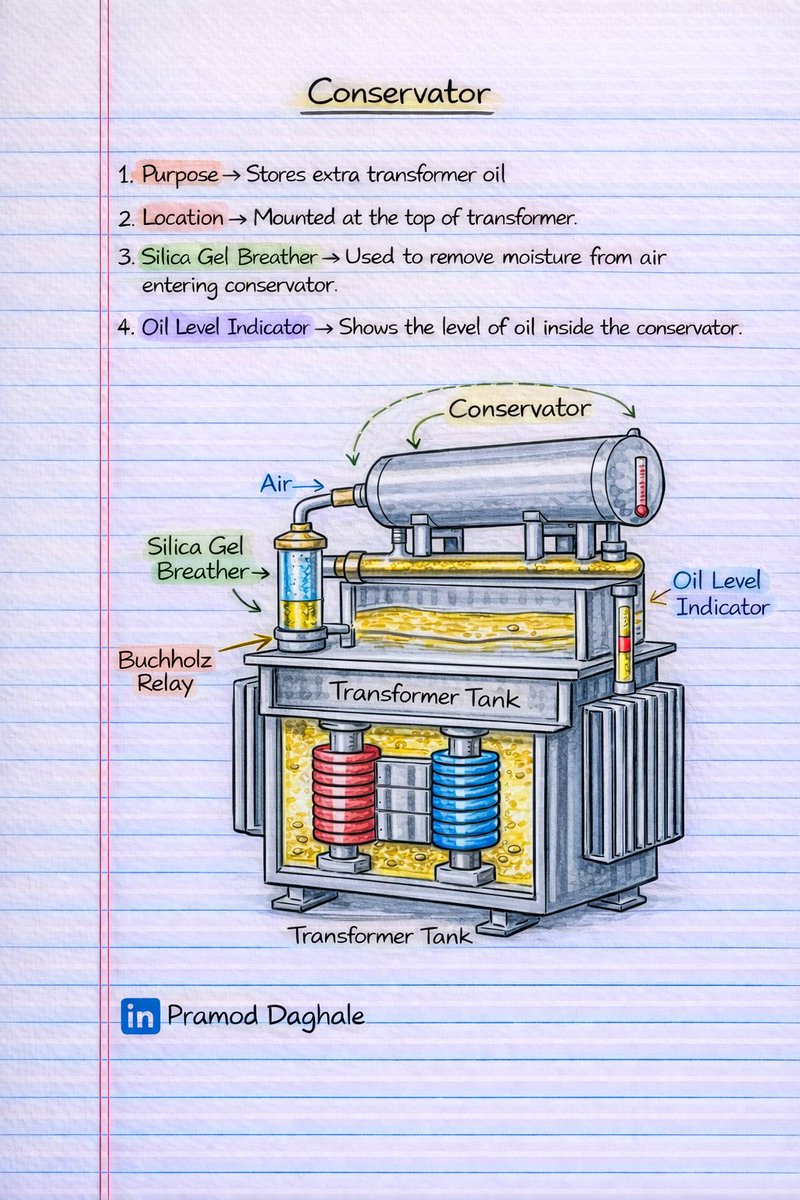 Conservator
1. Purpose → Stores extra transformer oil
2. Location → Mounted at the top of transformer.
3. Silica Gel Breather → Used to remove moisture from air
entering conservator.
4. Oil Level Indicator → Shows the level of oil inside the conservator.
Conservator
Air
Silica Gel
Breather
Oil Level
Indicator
Buchholz
Relay
Transformer Tank
Transformer Tank
in Pramod Daghale